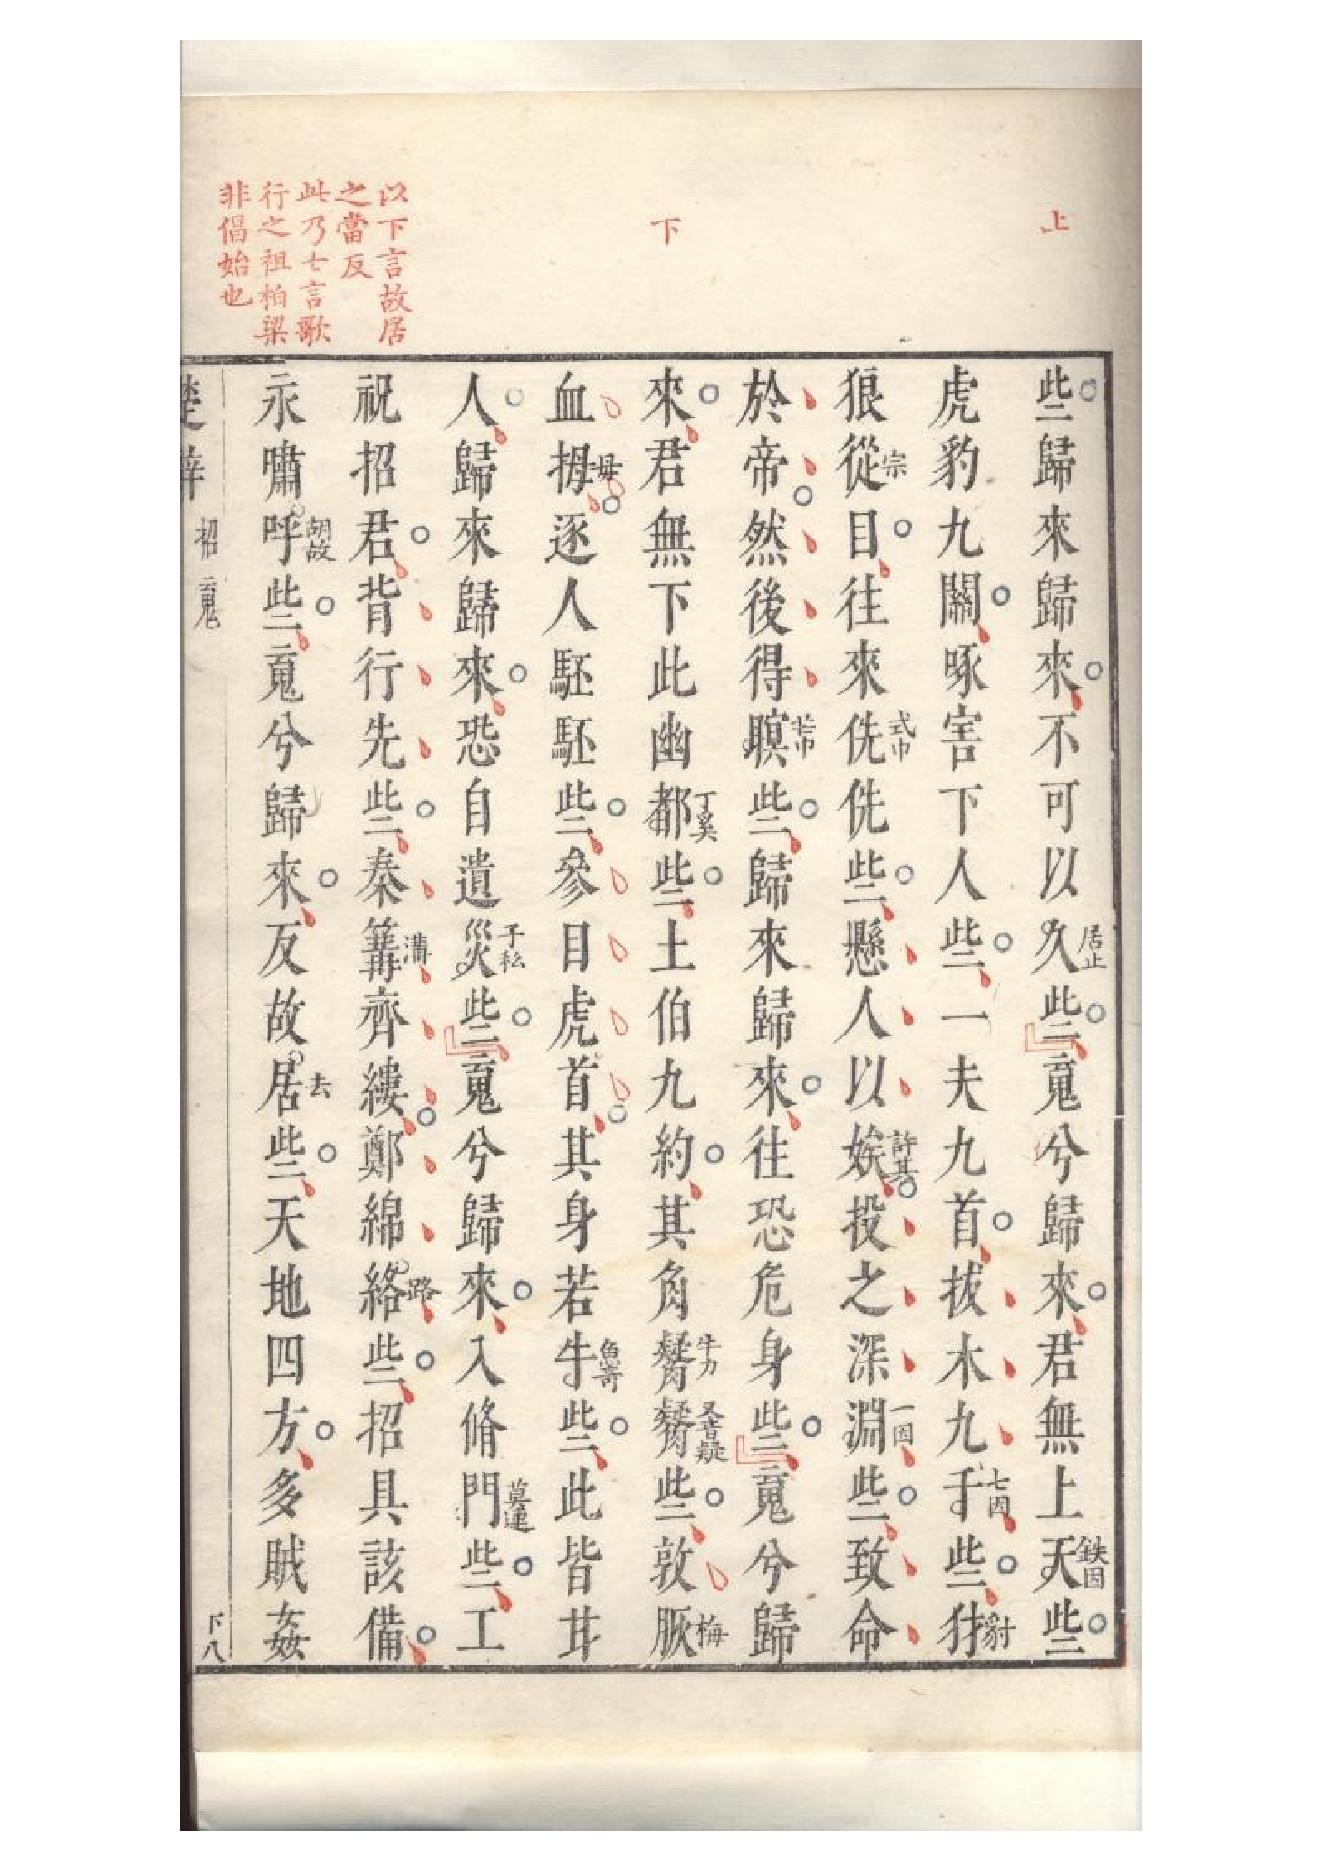 上
下
以下言故居
之當反
此乃七言歌
行之祖柏梁
非倡始也
些歸來歸來不可以久居止些䰟兮歸來君無上天鉄因些
虎豹九關啄害下人些一夫九首拔木九千七因些犲豺
狼從宗目往來侁式巾侁些懸人以娭許其投之深淵一因些致命
於帝然後得瞑些歸來歸來往恐危身些䰟兮歸
來君無下此幽都丁奚些土伯九約其角觺牛力觺又音疑些敦脄梅
血拇母逐人駓駓些參目虎首其身若牛魚奇些此皆甘
人歸來歸來恐自遺災子私些䰟兮歸來入脩門莫連些工
祝招君背行先些秦篝溝齊縷鄭綿絡路些招具該備
永嘯呼胡故些䰟兮歸來反故居去些天地四方多賊姦
楚辭 招䰟 下八